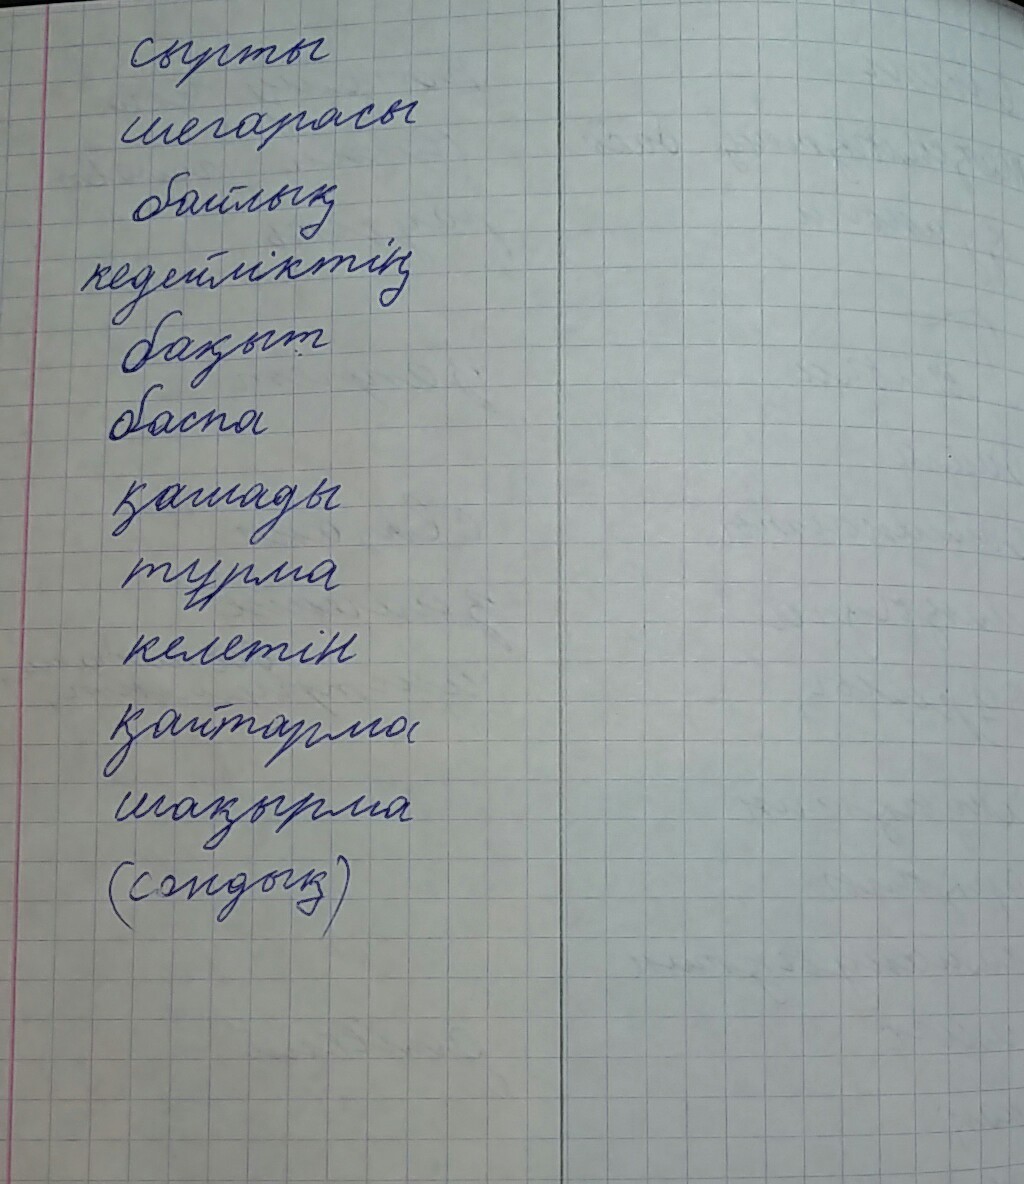 сырты
шегарасы
байлық
кедейліктің
бақыт
баспа
қашады
тұрма
келетін
қайтарма
шақырма
(сондық)